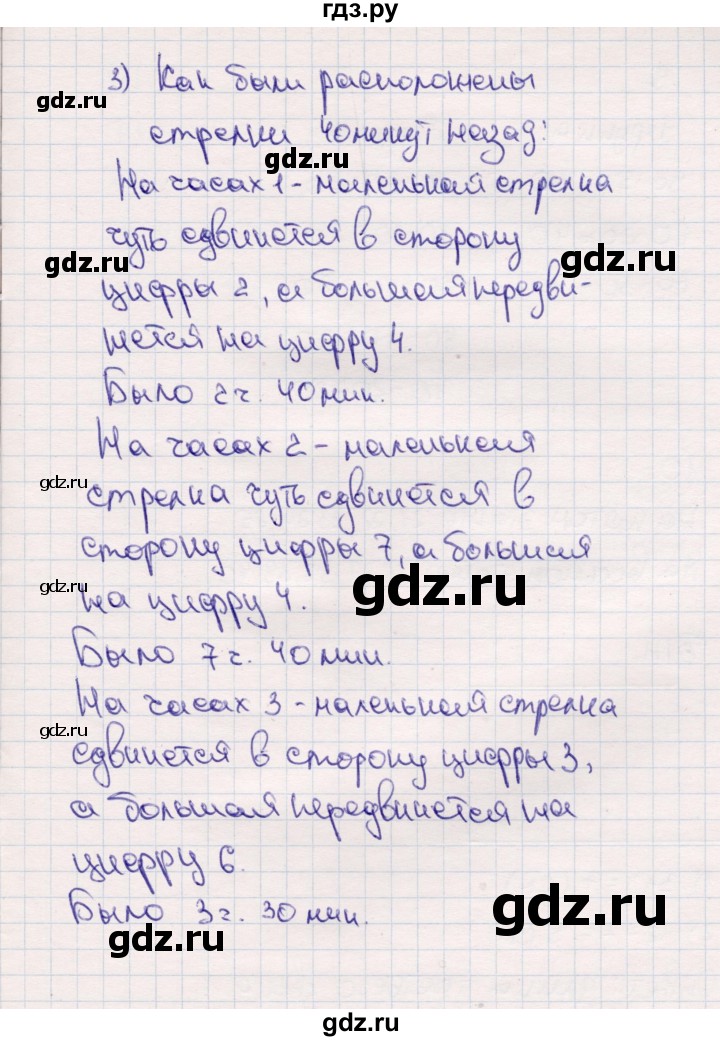 гдз.ру
3) Как были расположены
стрелки 40 минут назад:
gdz.ru
На часах 1 - маленькая стрелка
чуть сдвинется в сторону
gdz.ru
gdz.ru
цифры 2, а большая передви-
нется на цифру 4.
Было 2 ч. 40 мин.
На часах 2 - маленькая
gdz.ru
стрелка чуть сдвинется в
сторону цифры 7, а большая
gdz.ru
gdz.ru
на цифру 4.
Было 7 ч. 40 мин.
На часах 3 - маленькая стрелка
gdz.ru
сдвинется в сторону цифры 3,
а большая передвинется на
цифру 6.
Было 3 ч. 30 мин.
gdz.ru
gdz.ru
gdz.ru